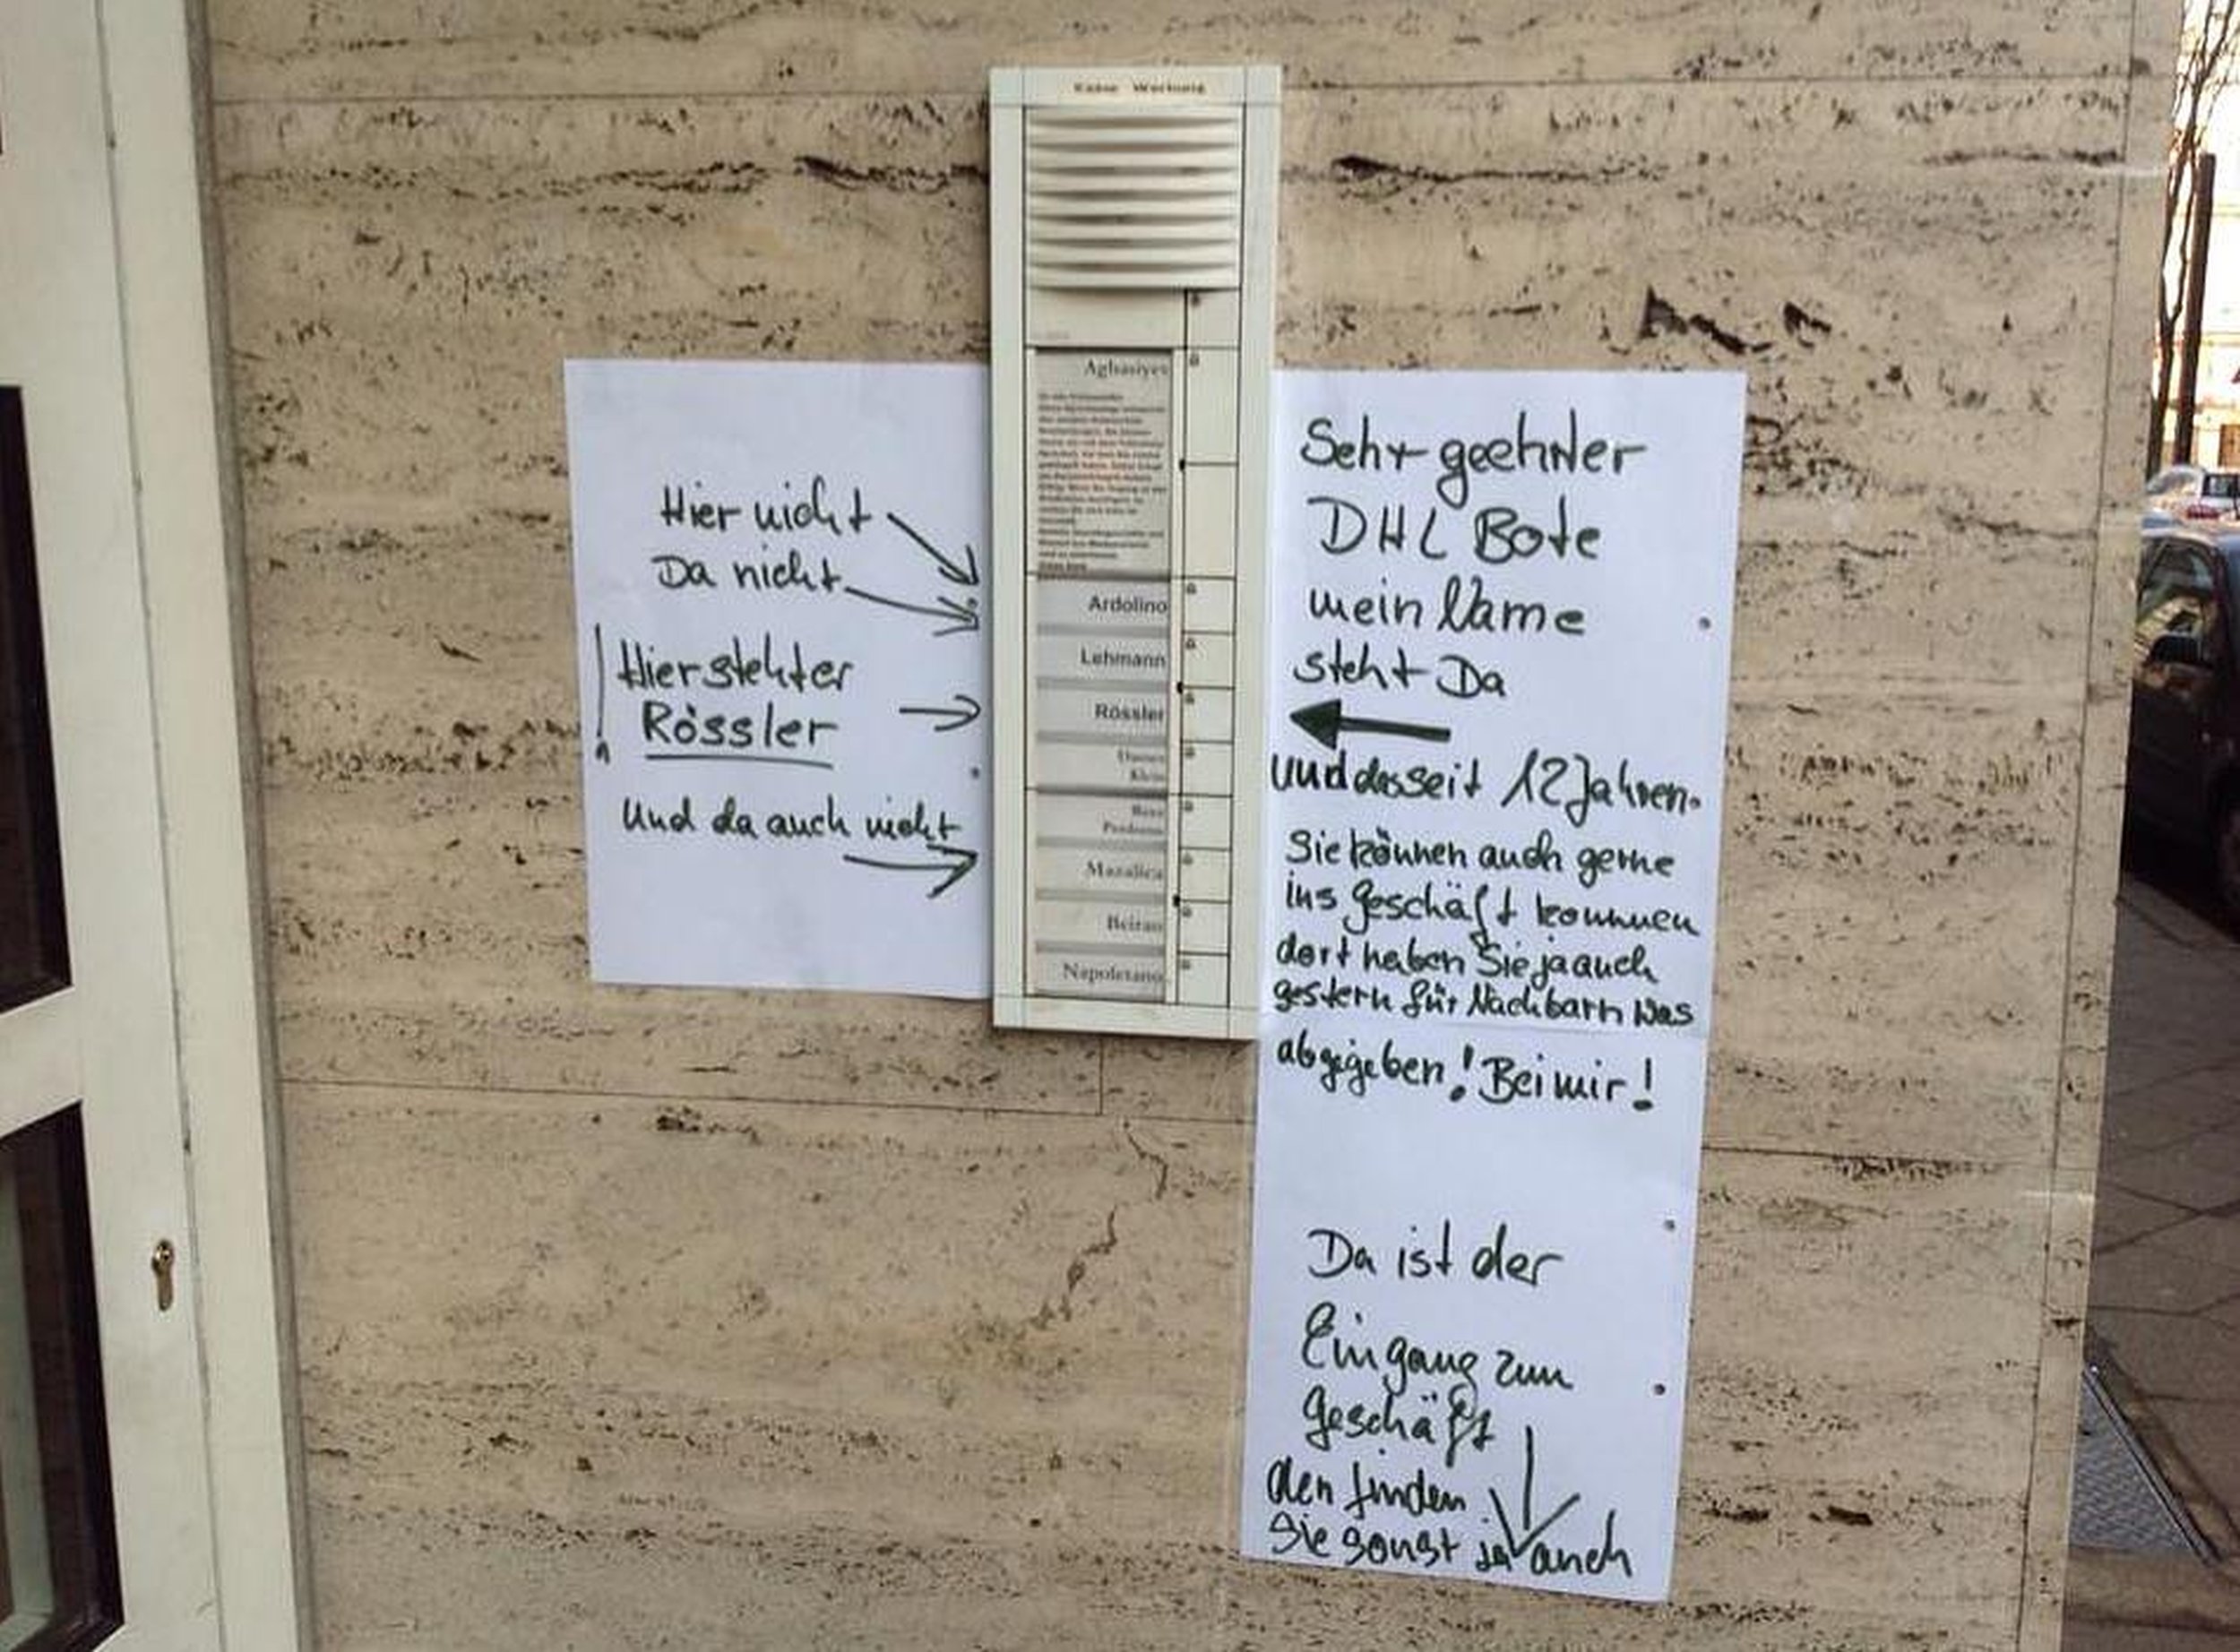 Keine Werbung
Hier nicht
Da nicht
Hier stehter
Rössler
Und da auch nicht
Aghasiyev
Ardolino
Lehmann
Rössler
Klein
Mazalica
Beirao
Napoletano
Sehr geehrter
DHL Bote
mein Name
steht Da
und das seit 12 Jahren.
Sie können auch gerne
ins Geschäft kommen
dort haben Sie ja auch
gestern für Nachbarn was
abgegeben! Bei mir!
Da ist der
Eingang zum
Geschäft
den finden
Sie sonst ja auch